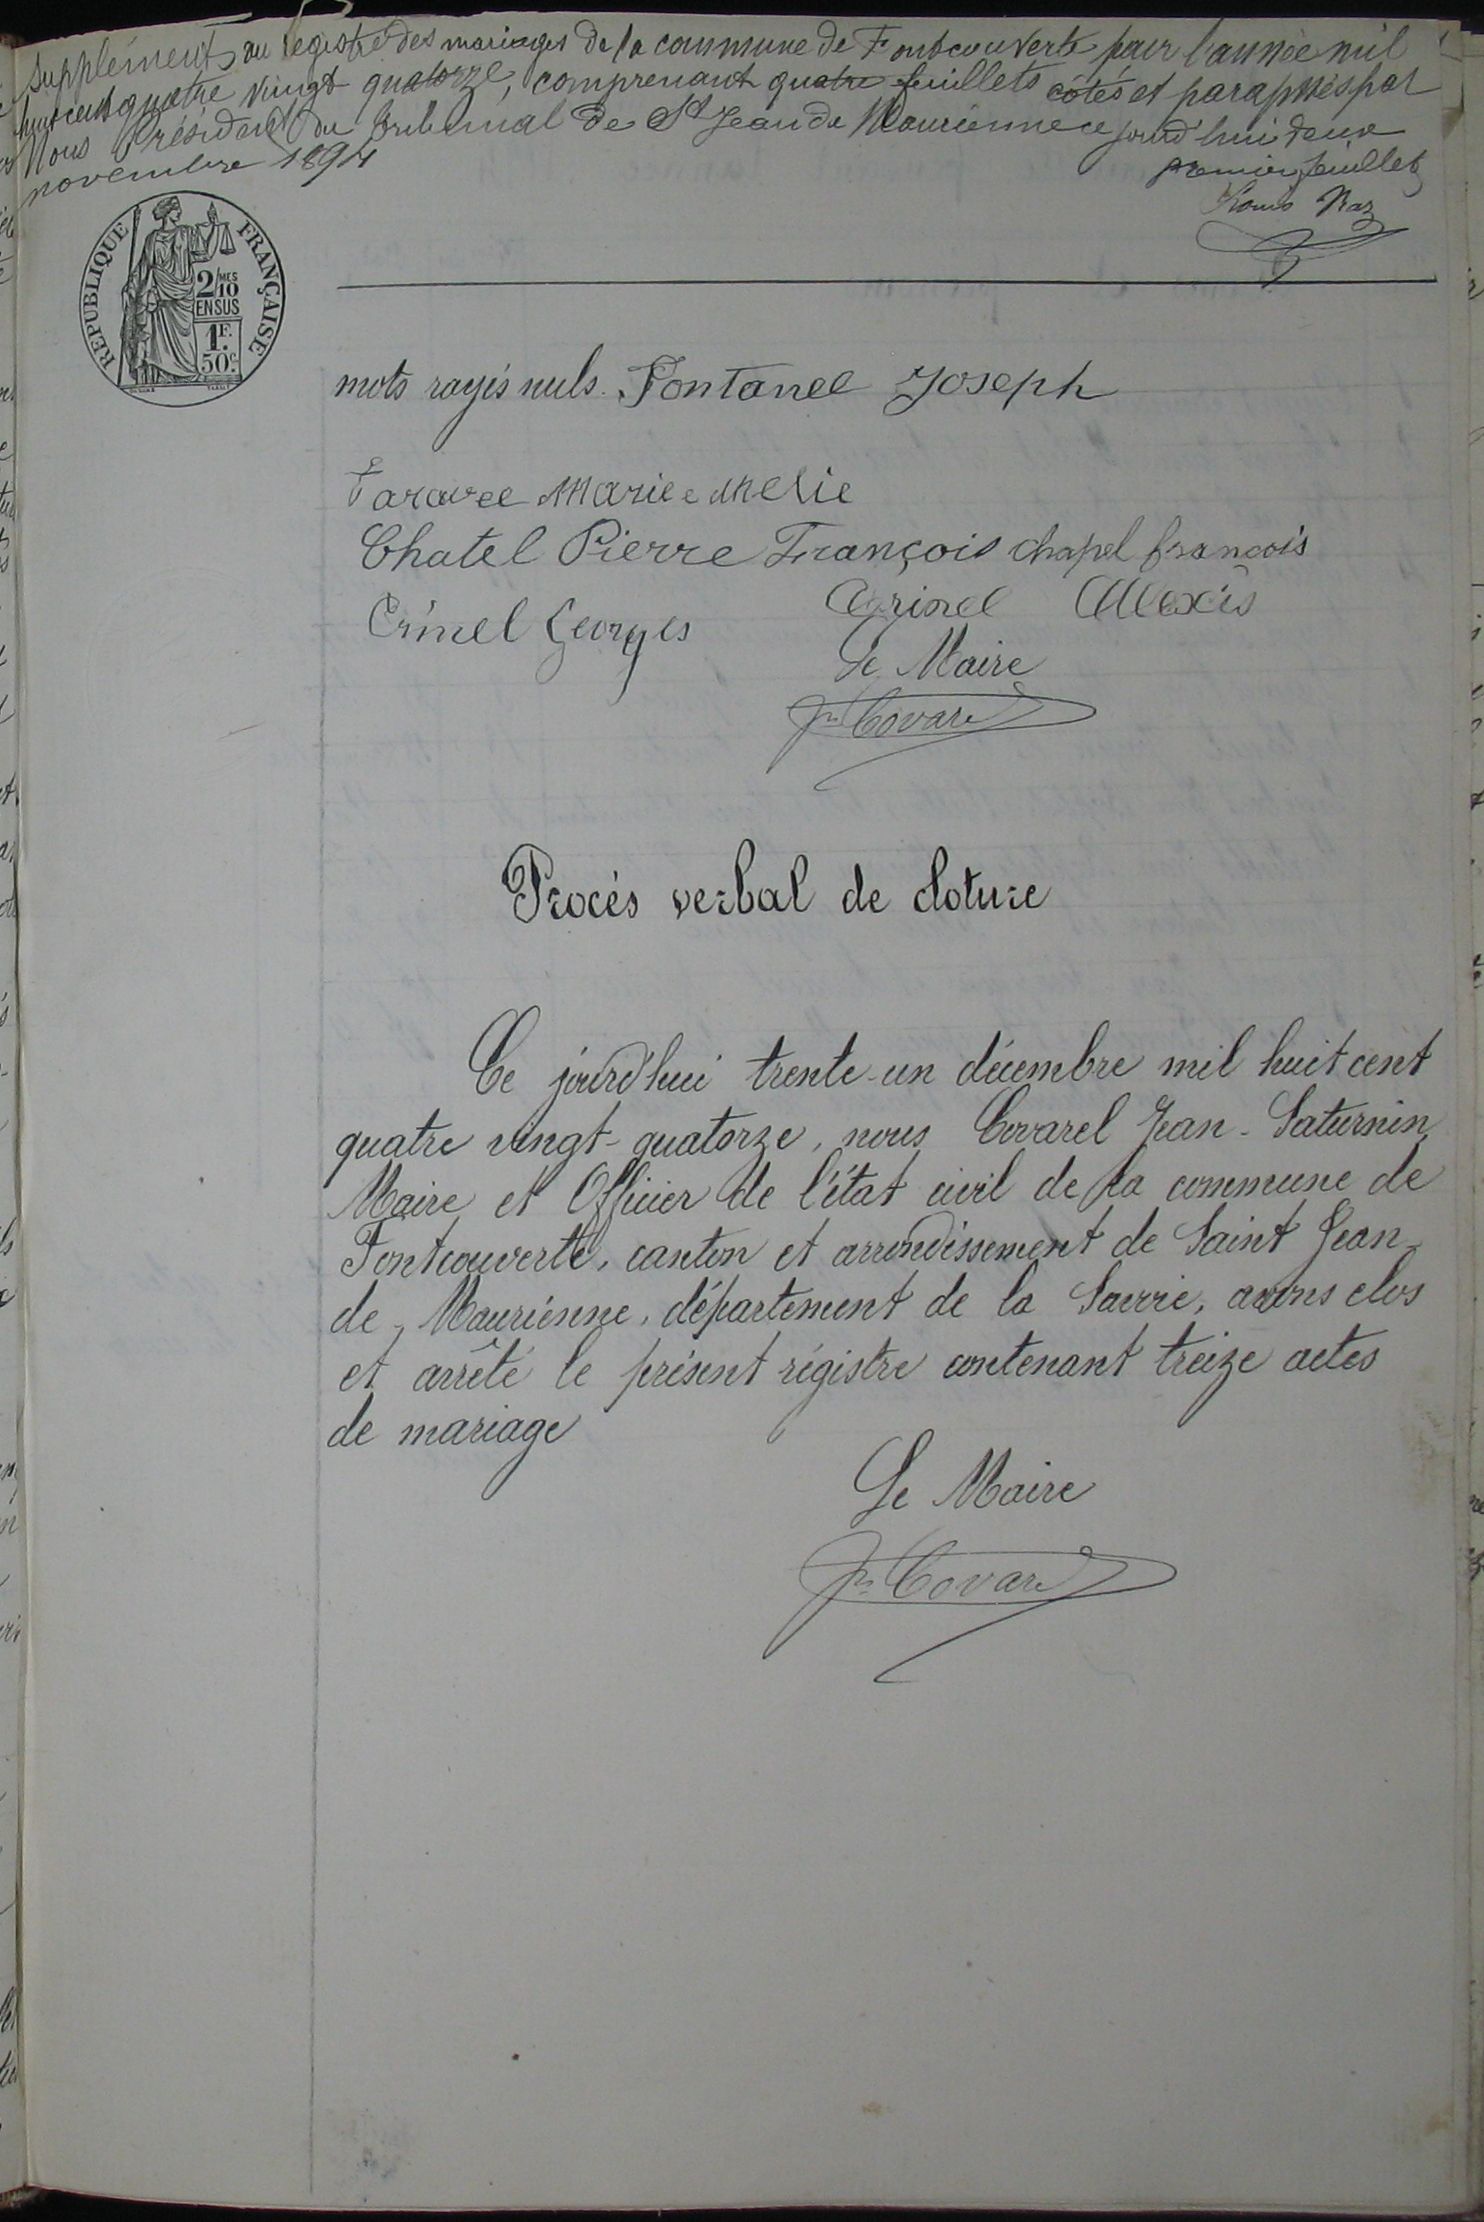 Supplément au registre des mariages de la commune de Fontcouverte pour l'année mil
huit cent quatre vingt quatorze, comprenant quatre feuillets côtés et paraphés par
Nous Président du Tribunal de St Jean de Maurienne ce jourd'hui deux
novembre 1894
premier feuillet
Naz
REPUBLIQUE FRANÇAISE
2/MES 10
EN SUS
1 F.
50 c.
mots rayés nuls. Fontanel Joseph
Taravel Marie Melie
Chatel Pierre François chapel francois
Crinel Georges
Crinel Alexis
Le Maire
Jn Covarel
Procès verbal de cloture
Ce jourd'hui trente-un décembre mil huit cent
quatre vingt-quatorze, nous Covarel Jean-Saturnin
Maire et Officier de l'état civil de la commune de
Fontcouverte, canton et arrondissement de Saint Jean
de Maurienne, département de la Savoie, avons clos
et arrêté le présent régistre contenant treize actes
de mariage
Le Maire
Jn Covarel